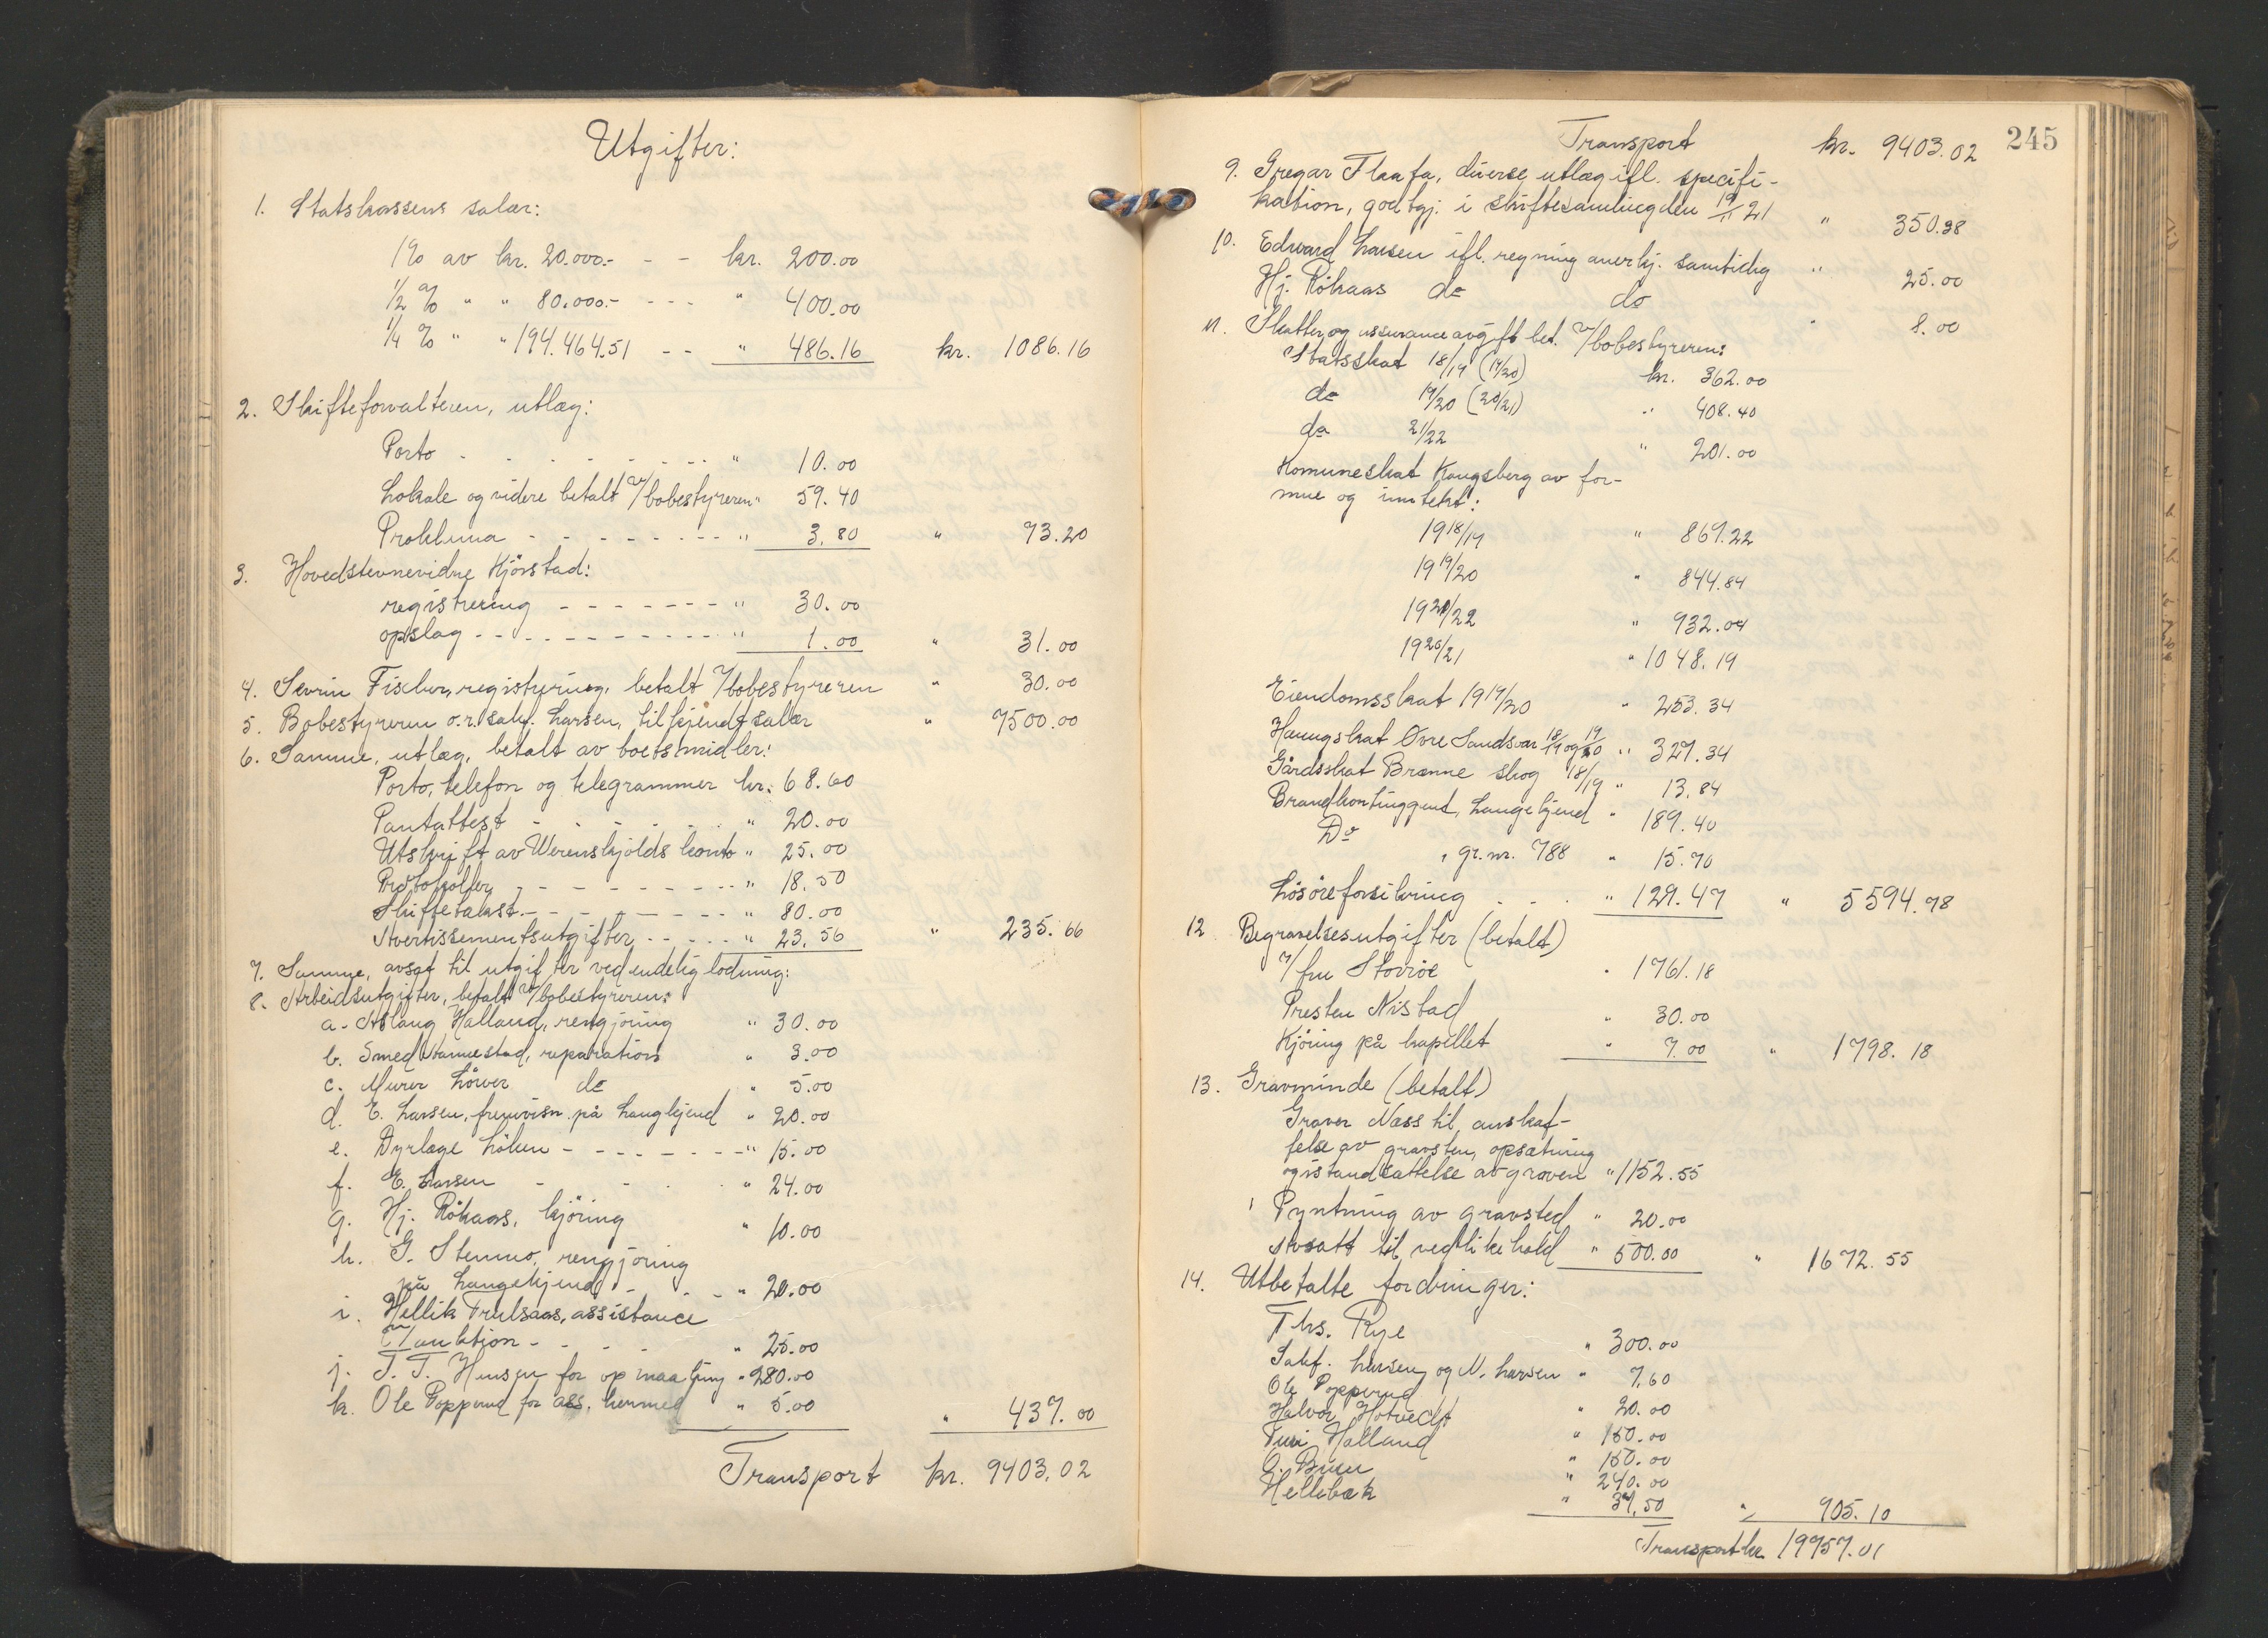 Utgifter:
1. Statskassens salær:
1% av kr. 20.000.- - - kr. 200.00
1/2 % " " 80.000.- - - - " 400.00
1/4 % " " 194.464.51 - - " 486.16 kr. 1086.16
2. Skifteforvalteren, utlæg:
Porto - - - - - - - " 10.00
Lokale og videre betalt v/bobestyreren " 59.40
Proklama - - - - - - - - " 3.80 " 73.20
3. Hovedstevnevidne Kjørstad:
registrering - - - - - - - " 30.00
opslag - - - - - - - - - " 1.00 " 31.00
4. Sevrin Fischer, registrering, betalt v/bobestyreren " 30.00
5. Bobestyreren o.r.sakf. Larsen, tilkjendt salær " 7500.00
6. Samme, utlæg, betalt av boets midler:
Porto, telefon og telegrammer kr. 68.60
Pantattest - - - - - " 20.00
Utskrift av Werenskjolds konto " 25.00
Protokoller - - - - - - - - " 18.50
Skiftetakst - - - - - - - - " 80.00
Avertissementsutgifter - - - - " 23.56 " 235.66
7. Samme, avsat til utgifter ved endelig lodning:
8. Arbeidsutgifter, betalt v/bobestyreren:
a. Aslaug Halland, rengjøring " 30.00
b. Smed Hannestad, reparation " 3.00
c. Murer Löwer do " 5.00
d. E. Larsen, fremvisn. på Langkjend " 20.00
e. Dyrlæge Löken - - - - - - - " 15.00
f. E. Larsen - - - - " 24.00
g. Hj. Rökaas, kjöring " 10.00
h. G. Stenmo, rengjöring
på Langekjend - - - " 20.00
i. Hellik Trulsaas, assistance
v/auktion - - - - " 25.00
j. T. T. Hansen for opmaaling " 280.00
k. Ole Popperud for ass. hermed " 5.00 " 437.00
Transport kr. 9403.02
245
Transport kr. 9403.02
9. Gregar Flaata, diverse utlæg ifl. specifi-
kation, godtgj. i skiftesamling den 19/11 21 " 350.38
10. Edvard Larsen ifl. regning anerkj. samtidig " 25.00
Hj. Rökaas do do " 8.00
11. Skatter og assuranceavgift bet. v/bobestyreren:
Statsskat 18/19 (19/20) kr. 362.00
do 19/20 (20/21) " 408.40
do 21/22 " 201.00
Komuneskat Kongsberg av for-
mue og inntekt:
1918/19 " 869.22
1919/20 " 844.84
1921/22 " 932.04
1920/21 " 1048.19
Eiendomsskat 1919/20 " 253.34
Havnngskat Øvre Sandsvær 18/19 og 19/20 " 327.34
Gårdsskat Brænne skog 18/19 " 13.84
Brandkontinggent, Langekjend " 189.40
Do , gr.nr. 788 " 15.70
Lösöreforsikring - - - " 129.47 " 5594.78
12 Begravelsesutgifter (betalt)
v/fru Storröe " 1761.18
Presten Nistad " 30.00
Kjöring på kapellet " 7.00 " 1798.18
13. Gravminde (betalt)
Graver Næss til anskaf-
felse av gravsten, opsætning
og istandsættelse av graven " 1152.55
Pyntning av gravsted " 20.00
Avsatt til vedlikehold " 500.00 " 1672.55
14. Utbetalte fordringer:
Ths. Rye " 300.00
Sakf. Larsen og N. Larsen " 7.60
Ole Popperud " 20.00
Halvor Hotvedt " 150.00
Turi Halland " 150.00
O. Buen " 240.00
Hellebæk " 37.50 " 905.10
Transport kr. 19757.01